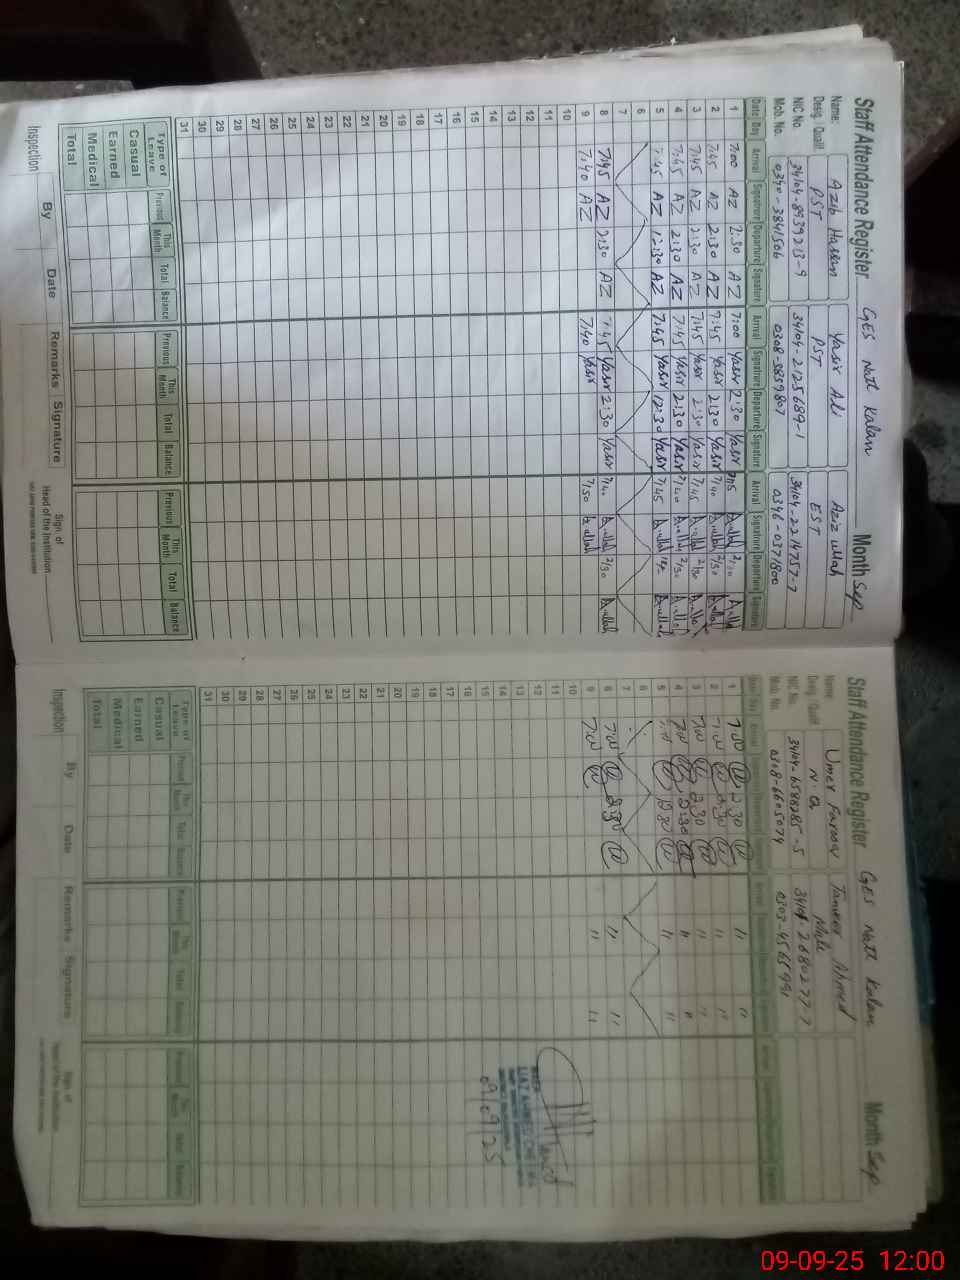 Staff Attendance Register GES Natt Kalan Month Sep
Name: Azib Hassan Yasir Ali Aziz ullah
Desig. Qualif. PST PST EST
NIC No. 34104-8939213-9 34104-2125689-1 34104-2214757-7
Mob. No. 0340-3841506 0308-3859807 0346-0371800
Date Day Arrival Signature Departure Signature Arrival Signature Departure Signature Arrival Signature Departure Signature
1 7:00 AZ 2:30 AZ 7:00 Yasir 2:30 Yasir 7/15 A.ullah 2/30 A.ullah
2 7:45 AZ 2:30 AZ 7:45 Yasir 2:30 Yasir 7/40 A.ullah 2/30 A.ullah
3 7:45 AZ 2:30 AZ 7:45 Yasir 2:30 Yasir 7/45 A.ullah 2/30 A.ullah
4 7:45 AZ 2:30 AZ 7:45 Yasir 2:30 Yasir 7/40 A.ullah 2/30 A.ullah
5 7:45 AZ 12:30 AZ 7:45 Yasir 12:30 Yasir 7/45 A.ullah A.ullah
6
7
8 7:45 AZ 2:30 AZ 7:45 Yasir 2:30 Yasir 7/40 A.ullah 2/30 A.ullah
9 7:40 AZ 7:40 Yasir 7/50 A.ullah
10
11
12
13
14
15
16
17
18
19
20
21
22
23
24
25
26
27
28
29
30
31
Type of Leave Previous This Month Total Balance Previous This Month Total Balance Previous This Month Total Balance
Casual
Earned
Medical
Total
Inspection By Date Remarks Signature Sign. of Head of the Institution
Staff Attendance Register GES Natt Kalan Month Sep
Name Umer Farooq Tanveer Ahmed
Desig. Qualif. N.Q Mali
NIC No. 34104-6548285-5 34104-2680277-7
Mob. No. 0308-6605074 0303-4565991
1 7:00 2:30 " "
2 7:00 2:30 " "
3 7:00 2:30 " "
4 7:00 2:30 " "
5 7:00 12:30 " "
6
7
8 7:00 2:30 " "
9 7:00 " "
10
11
12
13
14
15
16
17
18
19
20
21
22
23
24
25
26
27
28
29
30
31
09/09/25
Type of Leave Previous This Month Total Balance
Casual
Earned
Medical
Total
Inspection By Date Remarks Signature Sign. of
09-09-25 12:00